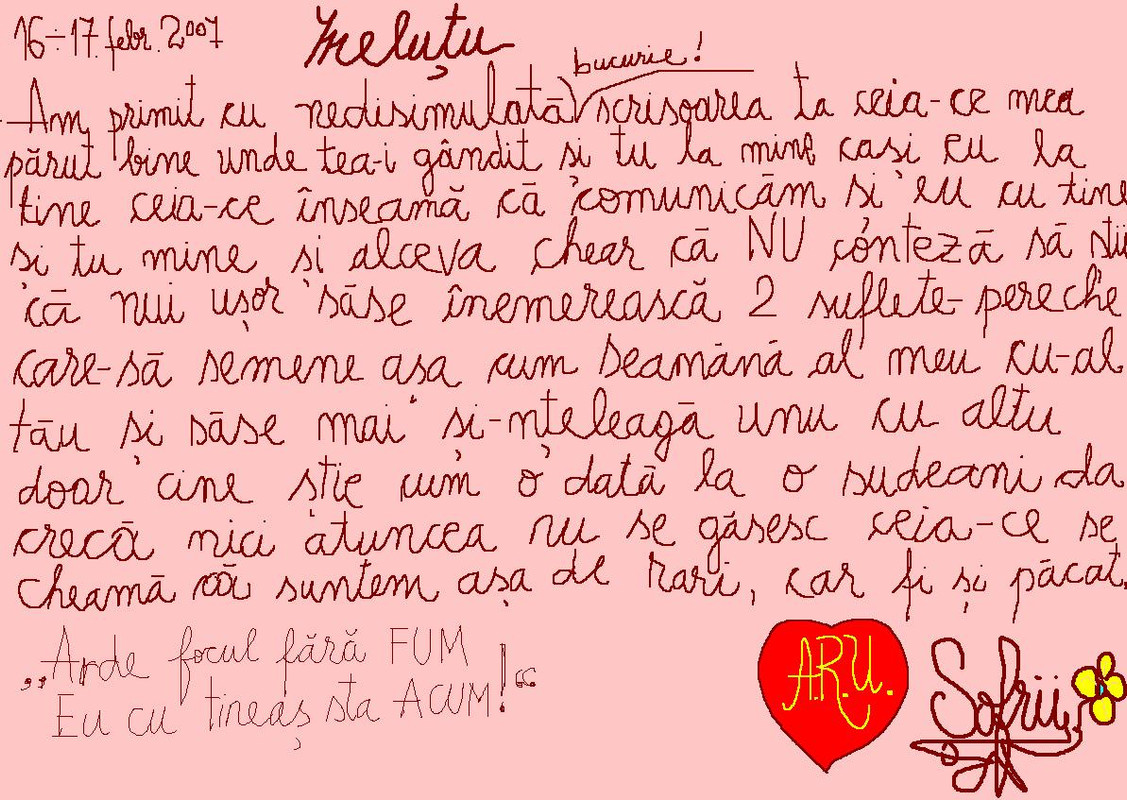 16÷17. febr. 2007
Ineluțu
bucurie!
Am primit cu nedisimulată scrisoarea ta ceia-ce mea
părut bine unde tea-i gândit și tu la mine casi eu la
tine ceia-ce înseamă că comunicăm și eu cu tine
și tu mine și alceva chear că NU contează să știi
că nui ușor săse înemerească 2 suflete-pereche
care-să semene așa cum seamănă al meu cu-al
tău și săse mai și-nțeleagă unu cu altu
doar cine știe cum o dată la o sudeani da
crecă nici atuncea nu se găsesc ceia-ce se
cheamă că suntem așa de rari, car fi și păcat.
„Arde focul fără FUM
Eu cu tineaș sta ACUM!“
A.R.U.
Sofrii